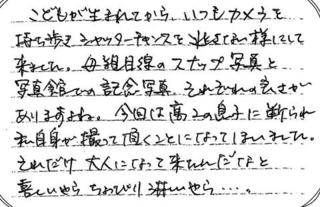 こどもが生まれてから、いつもカメラを
持ち歩きシャッターチャンスを逃さない様にして
来ました。母親目線のスナップ写真と
写真館での記念写真、それぞれの良さが
ありますよね。今回は高2の息子に断られ
私自身が撮って頂くことになってしまいました。
それだけ大人になって来たんだなと
喜しいやら ちょっぴり淋いやら…。